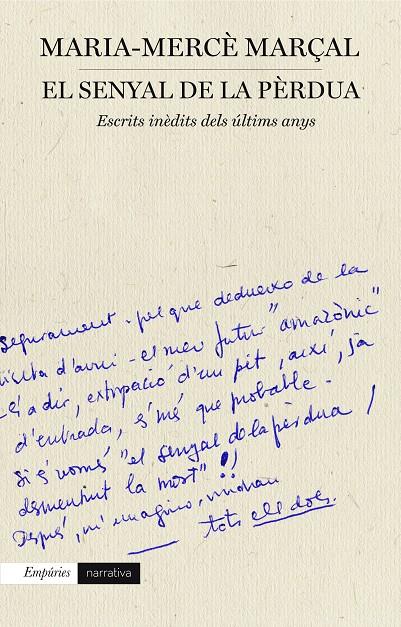 MARIA-MERCÈ MARÇAL
EL SENYAL DE LA PÈRDUA
Escrits inèdits dels últims anys
Segurament - pel que dedueixo de la
visita d'avui - el meu futur "amazònic"
-és a dir, extirpació d'un pit, així, ja
d'entrada, és més que probable.
Si és només "el senyal de la pèrdua /
desmentint la mort"!!
Després, m'imagino, vindran
tots ells dos.
Empúries
narrativa